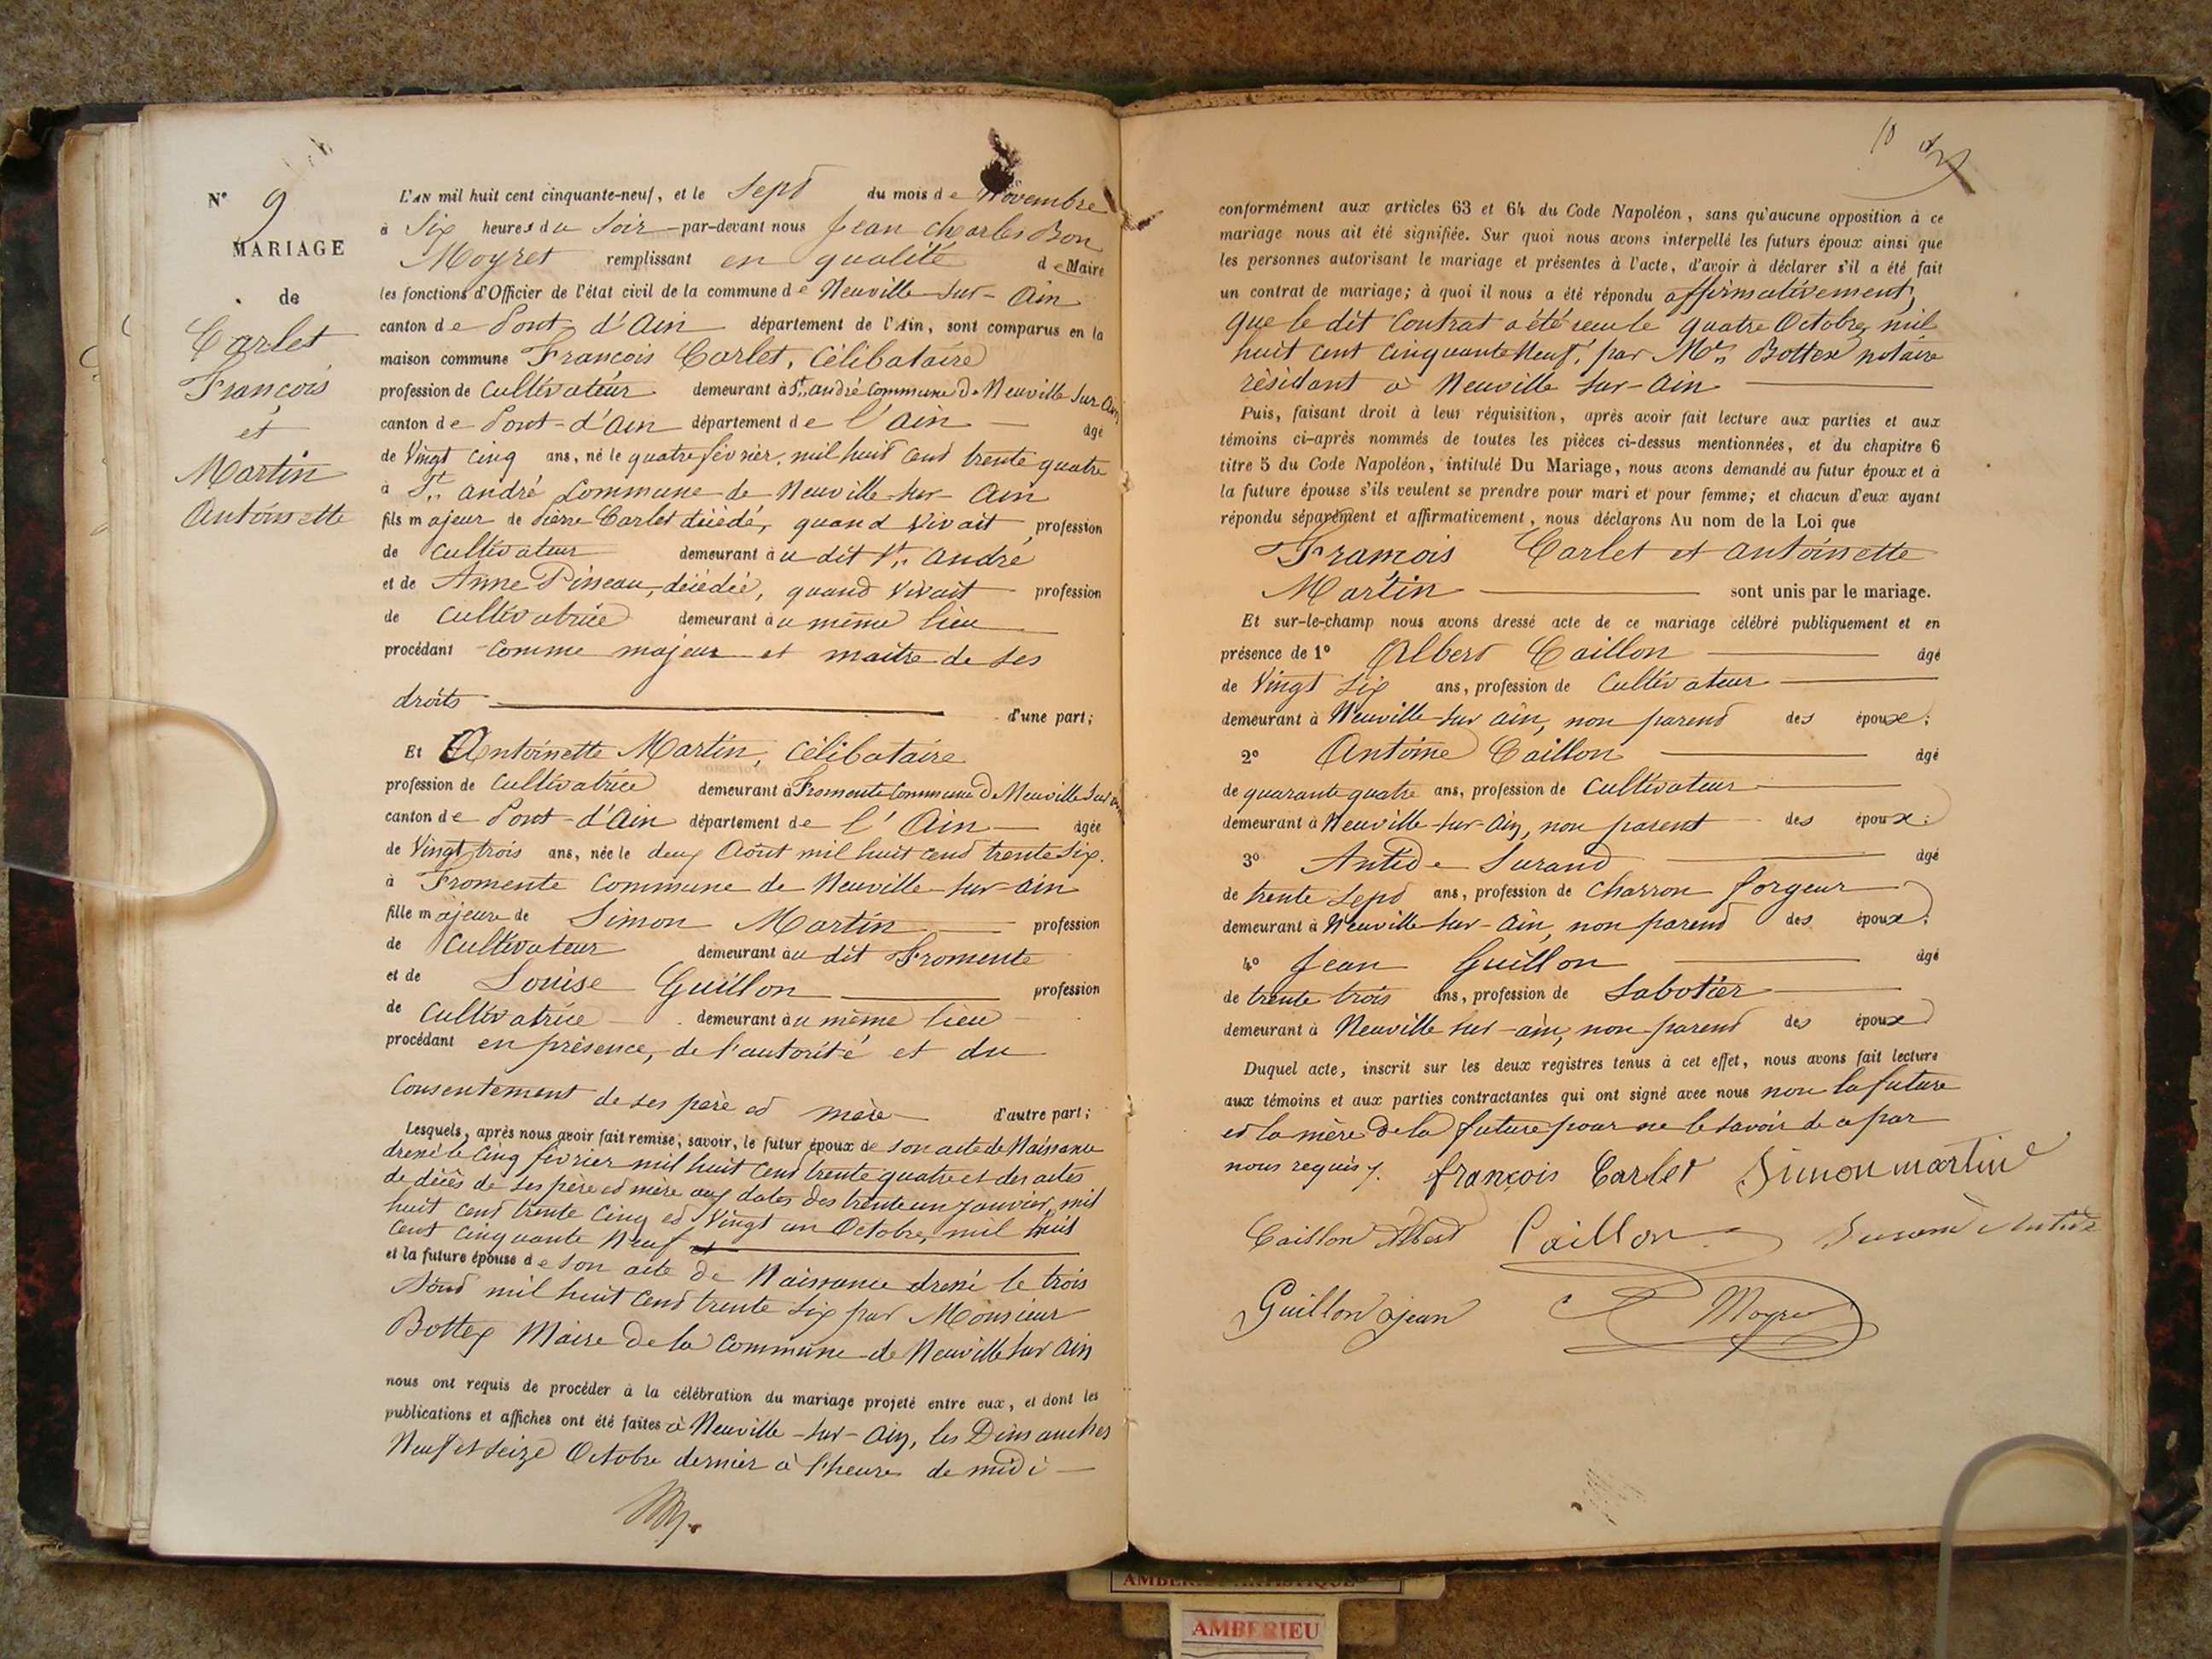 N° 9
MARIAGE
de
Carlet
François
et
Martin
Antoinette
L'AN mil huit cent cinquante-neuf, et le Sept du mois de Novembre
à Six heures du Soir par-devant nous Jean Charles Bon
Moyret remplissant en qualité de Maire
les fonctions d'Officier de l'état civil de la commune de Neuville-sur-Ain
canton de Pont-d'Ain département de l'Ain, sont comparus en la
maison commune François Carlet, Célibataire
profession de Cultivateur demeurant à St. andré Commune de Neuville Sur Ain
canton de Pont-d'Ain département de l'Ain âgé
de Vingt Cinq ans, né le quatre février, mil huit Cent trente quatre
à St. andré Commune de Neuville-sur-Ain
fils majeur de Pierre Carlet décédé, quand Vivait, profession
de Cultivateur demeurant au dit St. andré
et de Anne Pineau, décédée, quand Vivait profession
de Cultivatrice demeurant au même lieu
procédant Comme majeur et maître de ses
droits d'une part;
Et Antoinette Martin, Célibataire
profession de Cultivatrice demeurant à Fromente Commune de Neuville Sur ain
canton de Pont-d'Ain département de l'Ain âgée
de Vingt trois ans, née le deux Août mil huit cent trente Six.
à Fromente Commune de Neuville-sur-ain
fille majeure de Simon Martin profession
de Cultivateur demeurant au dit Fromente
et de Louise Guillon profession
de Cultivatrice demeurant au même lieu
procédant en présence, de l'autorité et du
Consentement de ses père et mère d'autre part;
Lesquels, après nous avoir fait remise, savoir, le futur époux de son acte de Naissance
dressé le Cinq février mil huit Cent trente quatre et des actes
de décès de ses père et mère aux dates des trente un janvier, mil
huit cent trente Cinq et Vingt un Octobre, mil huit
Cent Cinquante Neuf
et la future épouse de son acte de Naissance dressé le trois
Août mil huit Cent trente Six par Monsieur
Bottex Maire de la Commune de Neuville sur Ain
nous ont requis de procéder à la célébration du mariage projeté entre eux, et dont les
publications et affiches ont été faites à Neuville-sur-Ain, les Dimanches
Neuf et Seize Octobre dernier à l'heure de midi
10
conformément aux articles 63 et 64 du Code Napoléon, sans qu'aucune opposition à ce
mariage nous ait été signifiée. Sur quoi nous avons interpellé les futurs époux ainsi que
les personnes autorisant le mariage et présentes à l'acte, d'avoir à déclarer s'il a été fait
un contrat de mariage; à quoi il nous a été répondu affirmativement,
que le dit Contrat a été reçu le quatre Octobre, mil
huit cent Cinquante Neuf, par Me. Bottex notaire
résidant à Neuville sur-Ain
Puis, faisant droit à leur réquisition, après avoir fait lecture aux parties et aux
témoins ci-après nommés de toutes les pièces ci-dessus mentionnées, et du chapitre 6
titre 5 du Code Napoléon, intitulé Du Mariage, nous avons demandé au futur époux et à
la future épouse s'ils veulent se prendre pour mari et pour femme; et chacun d'eux ayant
répondu séparément et affirmativement, nous déclarons Au nom de la Loi que
François Carlet et antoinette
Martin sont unis par le mariage.
Et sur-le-champ nous avons dressé acte de ce mariage célébré publiquement et en
présence de 1° Albert Caillon âgé
de Vingt Six ans, profession de Cultivateur
demeurant à Neuville-sur ain, non parent des époux;
2° Antoine Caillon âgé
de quarante quatre ans, profession de Cultivateur
demeurant à Neuville-sur-Ain, non parent des époux;
3° Antide Surand âgé
de trente Sept ans, profession de Charron forgeur
demeurant à Neuville-sur-Ain, non parent des époux;
4° Jean Guillon âgé
de trente trois ans, profession de Sabotier
demeurant à Neuville sur-ain, non-parent des époux
Duquel acte, inscrit sur les deux registres tenus à cet effet, nous avons fait lecture
aux témoins et aux parties contractantes qui ont signé avec nous non la future
et la mère de la future pour ne le savoir de ce par
nous requis. françois Carlet Simon martin
Caillon Albert Caillon Surand Antide
Guillon jean Moyret
AMBERIEU